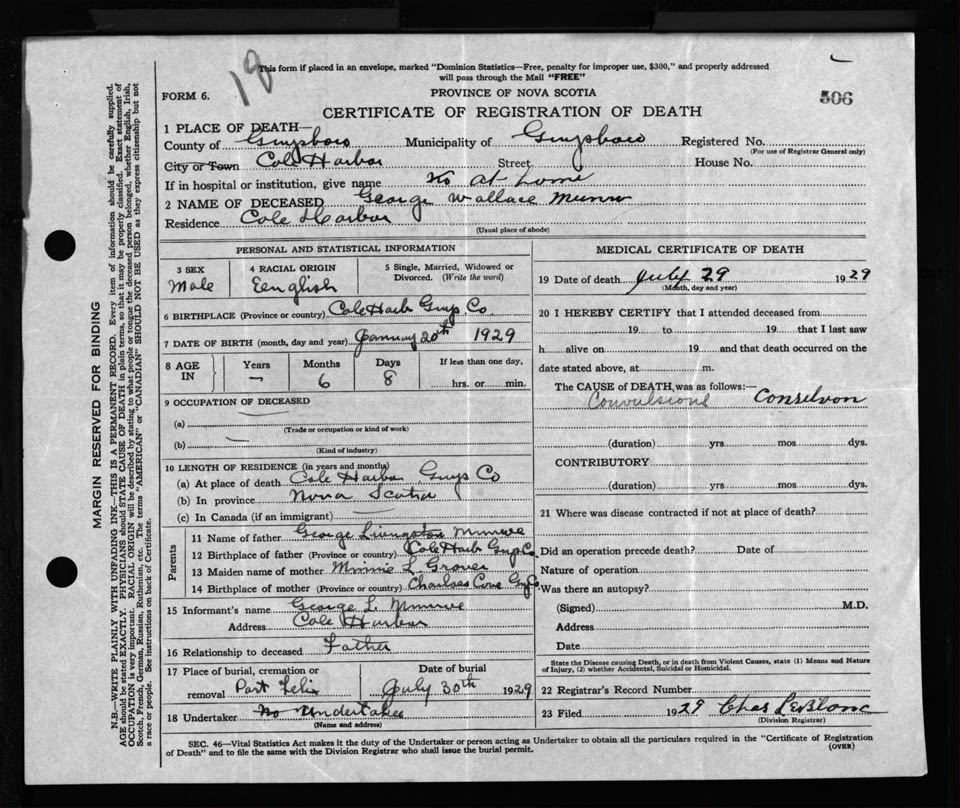 18
This form if placed in an envelope, marked "Dominion Statistics—Free, penalty for improper use, $300," and properly addressed
will pass through the Mail "FREE"
506
FORM 6.
PROVINCE OF NOVA SCOTIA
CERTIFICATE OF REGISTRATION OF DEATH
1 PLACE OF DEATH—
County of Guysboro Municipality of Guysboro Registered No.
(For use of Registrar General only)
City or Town Cole Harbor Street House No.
If in hospital or institution, give name No at home
2 NAME OF DECEASED George Wallace Munro
Residence Cole Harbor
(Usual place of abode)
PERSONAL AND STATISTICAL INFORMATION
3 SEX
Male
4 RACIAL ORIGIN
Eenglish
5 Single, Married, Widowed or
Divorced. (Write the word)
6 BIRTHPLACE (Province or country) Cole Harb Guys Co
7 DATE OF BIRTH (month, day and year) January 20th 1929
8 AGE
IN
Years Months Days If less than one day,
— 6 8 hrs. or min.
9 OCCUPATION OF DECEASED
(a)
(Trade or occupation or kind of work)
(b) —
(Kind of industry)
10 LENGTH OF RESIDENCE (in years and months)
(a) At place of death Cole Harbor Guys Co
(b) In province Nova Scotia
(c) In Canada (if an immigrant)
Parents
11 Name of father George Livingston
12 Birthplace of father (Province or country) Cole Harb Guys Co
13 Maiden name of mother Minnie L Grover
14 Birthplace of mother (Province or country) Charlses Cove Gy Co
15 Informant's name George L.
Address Cole Harbor
16 Relationship to deceased Father
17 Place of burial, cremation or
removal Port Felix
Date of burial
July 30th 1929
18 Undertaker No Undertaker
(Name and address)
MEDICAL CERTIFICATE OF DEATH
19 Date of death July 29 1929
(Month, day and year)
20 I HEREBY CERTIFY that I attended deceased from
19 to 19 that I last saw
h alive on 19 and that death occurred on the
date stated above, at m.
The CAUSE of DEATH, was as follows:—
Convulsions
(duration) yrs. mos. dys.
CONTRIBUTORY
(duration) yrs. mos. dys.
21 Where was disease contracted if not at place of death?
Did an operation precede death? Date of
Nature of operation
Was there an autopsy?
(Signed) M.D.
Address
Date
State the Disease causing Death, or in death from Violent Causes, state (1) Means and Nature
of Injury, (2) whether Accidental, Suicidal or Homicidal.
22 Registrar's Record Number
23 Filed 1929 Chas LeBlanc
(Division Registrar)
SEC. 46—Vital Statistics Act makes it the duty of the Undertaker or person acting as Undertaker to obtain all the particulars required in the "Certificate of Registration
of Death" and to file the same with the Division Registrar who shall issue the burial permit.
(OVER)
MARGIN RESERVED FOR BINDING
N.B.—WRITE PLAINLY WITH UNFADING INK—THIS IS A PERMANENT RECORD. Every item of information should be carefully supplied.
AGE should be stated EXACTLY. PHYSICIANS should STATE CAUSE OF DEATH in plain terms, so that it may be properly classified. Exact statement of
OCCUPATION is very important. RACIAL ORIGIN will be described by stating to what people or tongue the deceased person belonged, whether English, Irish,
Scotch, French, German, Russian, Ruthenian, etc. The terms "AMERICAN" or "CANADIAN" SHOULD NOT BE USED as they express citizenship but not
a race or people. See instructions on back of Certificate.